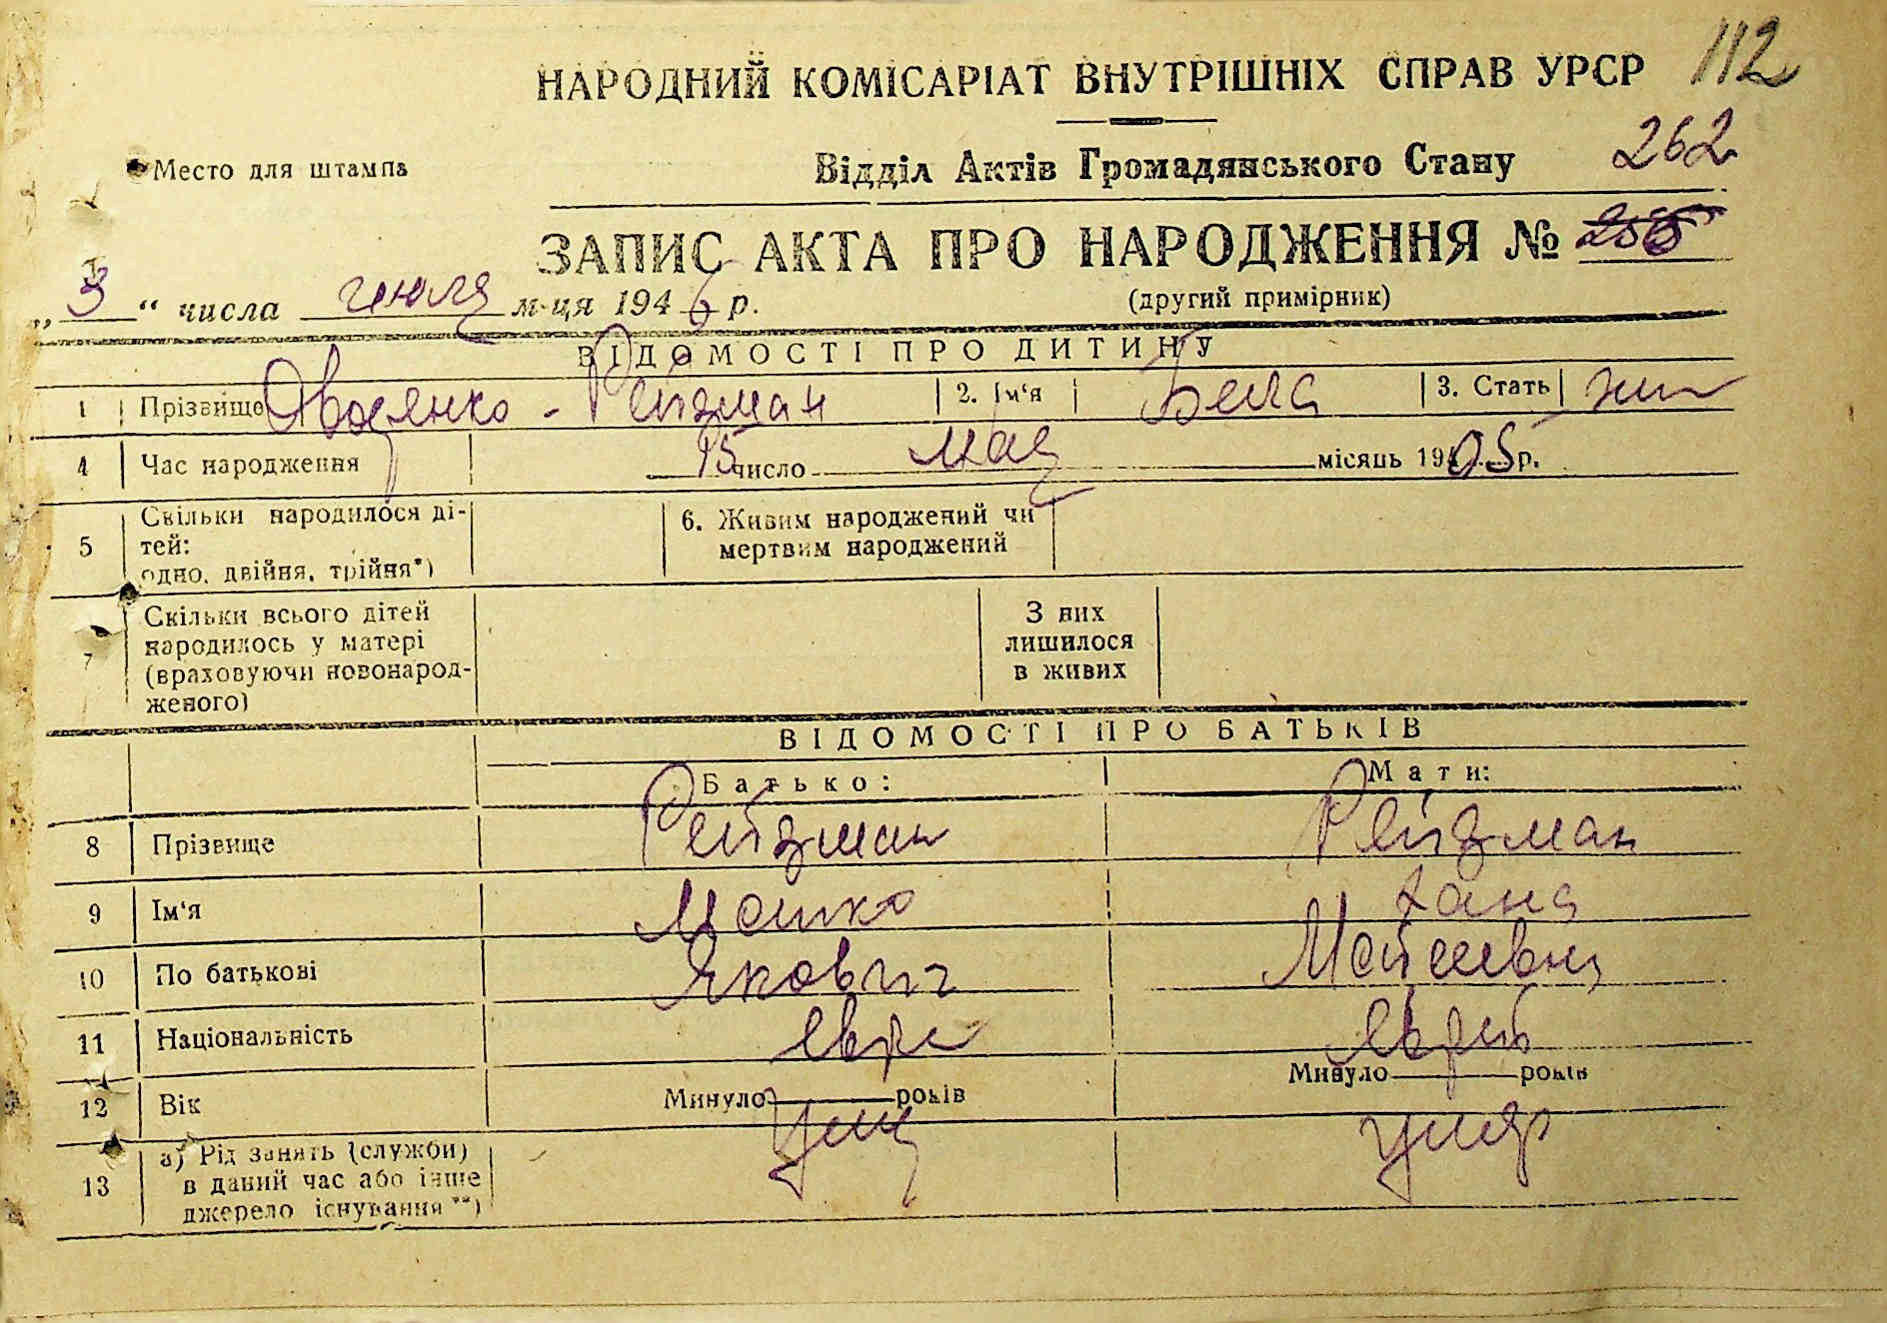 112
НАРОДНИЙ КОМІСАРІАТ ВНУТРІШНІХ СПРАВ УРСР
Место для штампа
Відділ Актів Громадянського Стану 262
ЗАПИС АКТА ПРО НАРОДЖЕННЯ №
„3“ числа июля м-ця 1946 р. (другий примірник)
ВІДОМОСТІ ПРО ДИТИНУ
1 Прізвище - Рейзман 2. Ім'я Бела 3. Стать жен
4 Час народження 15 число мая місяць 1905 р.
5 Скільки народилося ді-
тей:
одно, двійня, трійня*)
6. Живим народжений чи
мертвим народжений
7 Скільки всього дітей
народилось у матері
(враховуючи новонарод-
женого)
З них
лишилося
в живих
ВІДОМОСТІ ПРО БАТЬКІВ
Батько: Мати:
8 Прізвище Рейзман Рейзман
9 Ім'я Мошко Хана
10 По батькові Якович Мойсеевна
11 Національність Евре Еврей
12 Вік Минуло років Минуло років
13 а) Рід занять (служби)
в даний час або інше
джерело існування **)